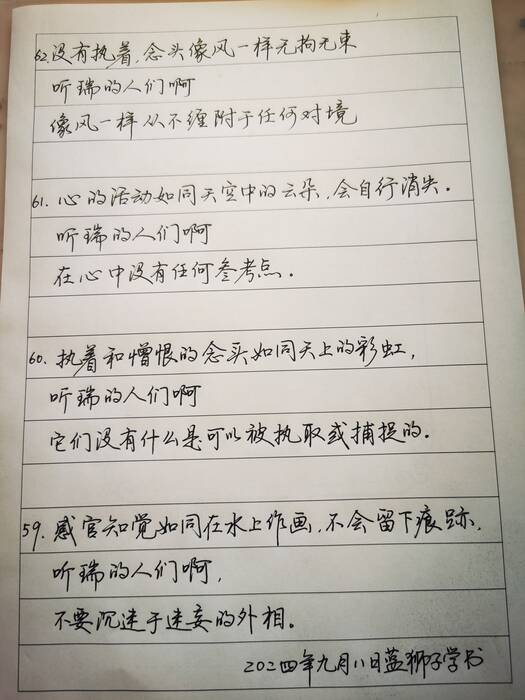 62.没有执着,念头像风一样无拘无束
听瑞的人们啊
像风一样从不缠附于任何对境
61.心的活动如同天空中的云朵,会自行消失。
听瑞的人们啊
在心中没有任何参考点。
60.执着和憎恨的念头如同天上的彩虹,
听瑞的人们啊
它们没有什么是可以被执取或捕捉的。
59.感官知觉如同在水上作画,不会留下痕跡,
听瑞的人们啊,
不要沉迷于迷妄的外相。
2024年九月八日蓝狮子学书